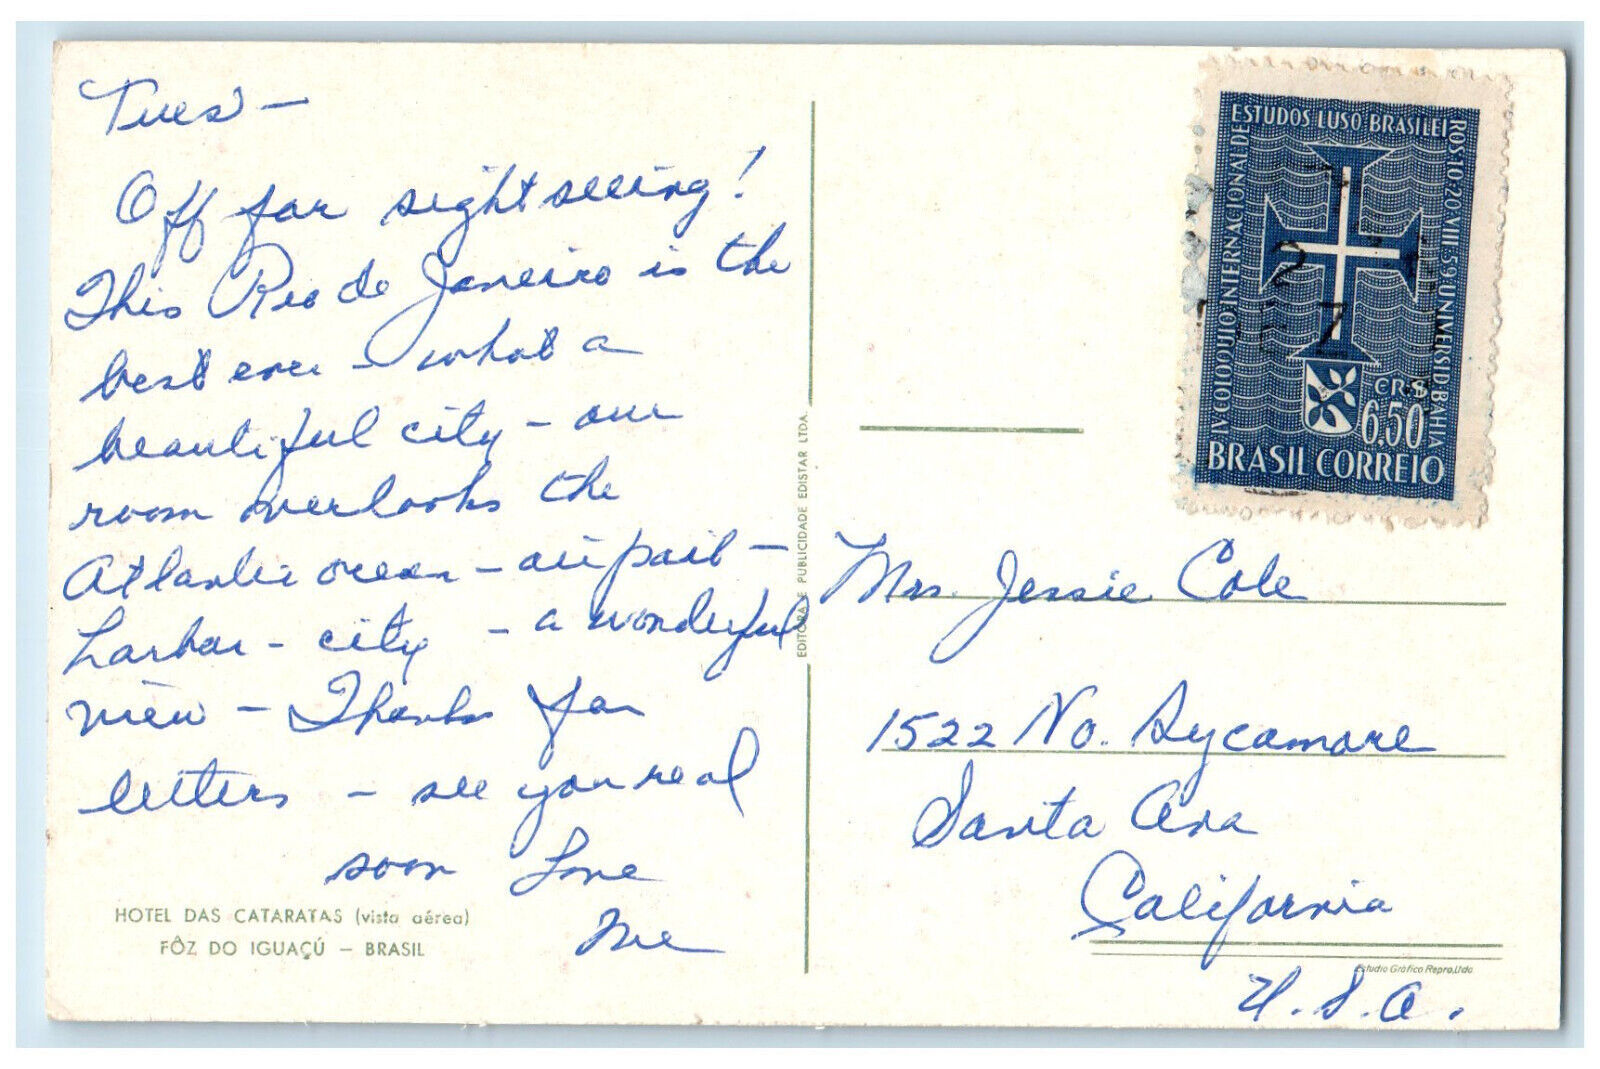 Tues -
Off for sight seeing!
This Rio de Janeiro is the
best ever - what a
beautiful city - our
room overlooks the
Atlantic ocean - airport -
harbor - city - a wonderful
view - Thanks for
letters - see you real
soon Love
Me
HOTEL DAS CATARATAS (vista aérea)
FÔZ DO IGUAÇÚ - BRASIL
EDITORA E PUBLICIDADE EDISTAR LTDA.
IV COLOQUIO INTERNACIONAL DE
ESTUDOS LUSO BRASILEI
ROS 10-20 VIII-59 UNIVERSID. BAHIA
CR$
6,50
BRASIL CORREIO
Mrs. Jessie Cole
1522 No. Sycamore
Santa Ana
California
U.S.A.
Estudio Gráfico Repro, Ltda